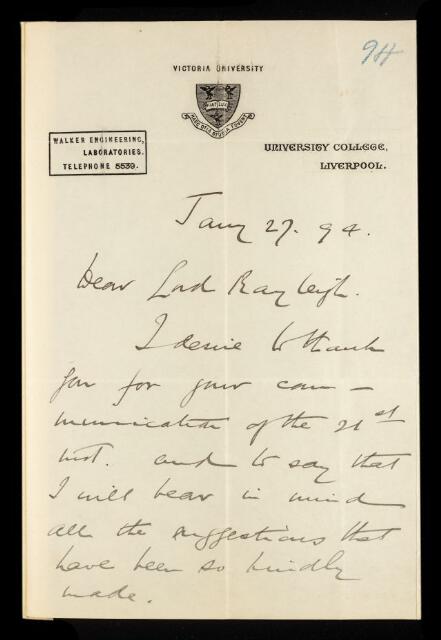 94
VICTORIA UNIVERSITY
FIAT LUX
HAEC OTIA STUDIA FOVENT
WALKER ENGINEERING,
LABORATORIES.
TELEPHONE 5539.
UNIVERSITY COLLEGE,
LIVERPOOL.
Jany 27. 94.
Dear Lord Rayleigh.
I desire to thank
you for your com-
munication of the 21st
inst. and to say that
I will bear in mind
all the suggestions that
have been so kindly
made.